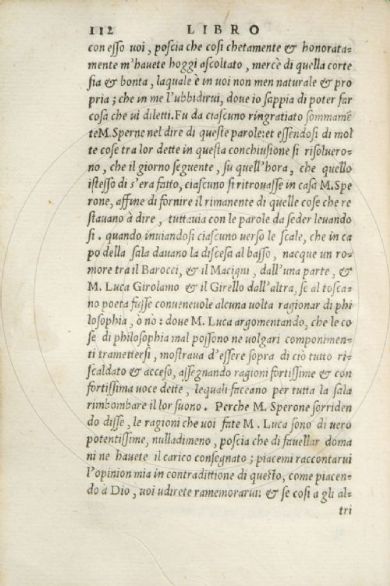 112 LIBRO
con esso uoi, poscia che cosi chetamente & honorata-
mente m'hauete hoggi ascoltato, mercè di quella corte
sia & bonta, laquale è in uoi non men naturale & pro
pria; che in me l'ubbidirui, doue io sappia di poter far
cosa che ui diletti. Fu da ciascuno ringratiato sommamẽ
te M. Sperne nel dire di queste parole: et essendosi di mol
te cose tra lor dette in questa conchiusione si risoluero-
no, che il giorno seguente, su quell'hora, che quello
istesso di s'era fatto, ciascuno si ritrouasse in casa M. Spe
rone, affine di fornire il rimanente di quelle cose che re
stauano à dire, tuttauia con le parole da seder leuando
si. quando inuiandosi ciascuno uerso le scale, che in ca
po della sala dauano la discesa al basso, nacque un ro-
more tra il Barocci, & il Macigni, dall'una parte, &
M. Luca Girolamo & il Girello dall'altra, se al tosca-
no poeta fusse conueneuole alcuna uolta ragionar di phi
losophia, ò nò: doue M. Luca argomentando, che le co
se di philosophia mal possono ne uolgari componimen-
ti tramettersi, mostraua d'essere sopra di ciò tutto ri-
scaldato & acceso, assegnando ragioni fortissime & con
fortissima uoce dette, lequali faceano per tutta la sala
rimbombare il lor suono. Perche M. Sperone sorriden
do disse, le ragioni che uoi fate M. Luca sono di uero
potentissime, nulladimeno, poscia che di fauellar doma
ni ne hauete il carico consegnato; piacemi raccontarui
l'opinion mia in contradittione di questo, come piacen-
do à Dio, uoi udirete ramemorarui. & se cosi a gli al-
tri